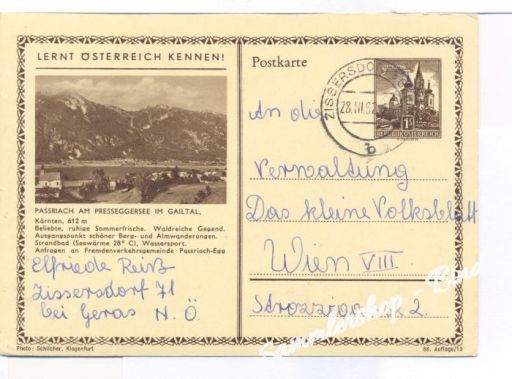 LERNT ÖSTERREICH KENNEN!
PASSRIACH AM PRESSEGGERSEE IM GAILTAL,
Kärnten, 612 m
Beliebte, ruhige Sommerfrische. Waldreiche Gegend.
Ausgangspunkt schöner Berg- und Almwanderungen.
Strandbad (Seewärme 28° C), Wassersport.
Anfragen an Fremdenverkehrsgemeinde Passriach-Egg
Elfriede Reiß
Zissersdorf 71
bei Geras N. Ö.
Photo: Schilcher, Klagenfurt
Postkarte
ZISSERSDORF
28. III. 62
b
1S
REPUBLIK ÖSTERREICH
An die
Verwaltung
Das kleine Volksblatt
Wien VIII.
2
86. Auflage/13
Sammlershop